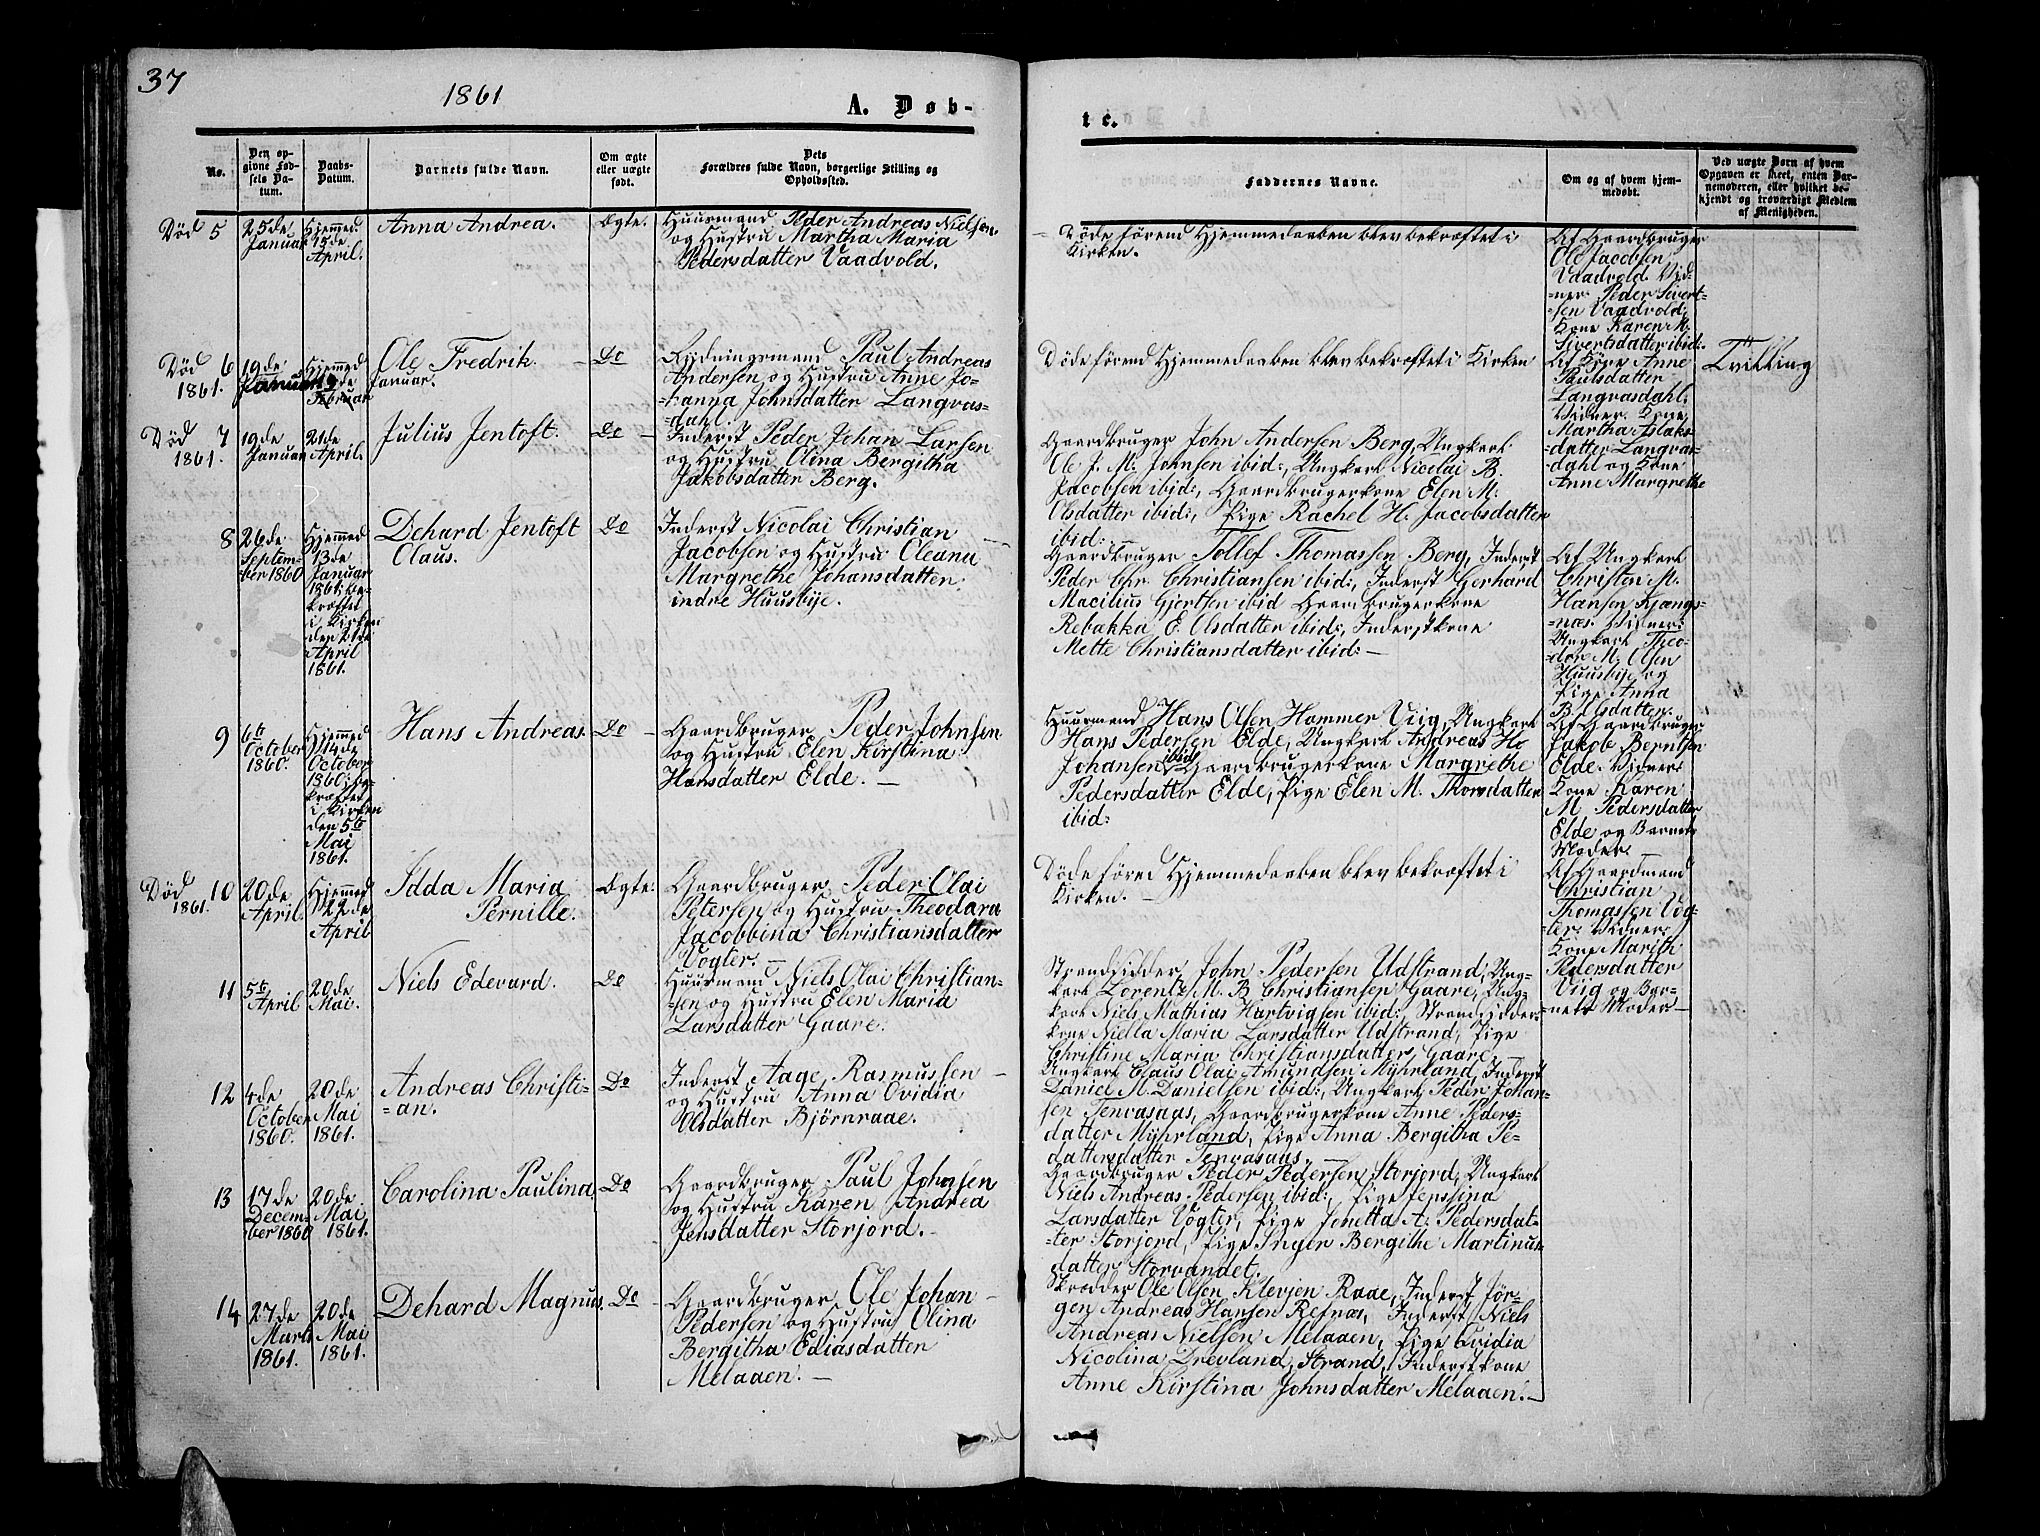 37
1861
A. Døb-
te.
No.
Den op-
givne Fød-
sels Da-
tum.
Daabs-
Datum.
Barnets fulde Navn.
Om ægte
eller uægte
født.
Dets
Forældres fulde Navn, borgerlige Stilling og
Opholdssted.
Faddernes Navne.
Om og af hvem hjem-
medøbt.
Ved uægte Børn af hvem
Opgaven er skeet, enten Bar-
nemoderen, eller hvilket be-
kjendt og troværdigt Medlem
af Menigheden.
Død 5
25de
Januar
Hjemmed.
15de
April.
Anna Andrea.
Ægte.
Huusmand Peder Andreas Nielsen
og Hustru Martha Maria
Pedersdatter Vaadvold.
Døde førend Hjemmedaaben blev bekræftet i
Kirken.
Af Gaardbruger
Ole Jacobsen
Vaadvold. Vid-
=ner: Peder Sivert-
=sen Vaadvold,
Kone Karen M.
Sivertsdatter ibid:
Død 6
1861.
19de
Januar
Hjemmed
19de
Januar.
Februar
Ole Fredrik.
Do
Rydningsmand Paul Andreas
Andersen og Hustru Anne Jo-
=hanna Johnsdatter Langvas-
=dahl.
Døde førend Hjemmedaaben blev bekræftet i Kirken
Af Kone Anne
Paulsdatter
Langvasdahl.
Vidner: Kone
Martha Aslaks-
=datter Langvas-
=dahl og Kone
Anne Margrethe
Tvilling
Død 7
1861.
19de
Januar
21de
April.
Julius Jentoft.
Do
Inderst Peder Johan Larsen
og Hustru Olina Bergitha
Jakobsdatter Berg.
Gaardbruger John Andersen Berg, Ungkarl
Ole J. M. Johnsen ibid:, Ungkarl Nicolai B.
Jacobsen ibid:, Gaardbrugerkone Elen M.
Olsdatter ibid:, Pige Rachel H. Jacobsdatter
ibid:
8
26de
Septem-
=ber 1860
Hjemmed
13de
Januar
1861; be-
kræftet
i Kirken
den 21de
April
1861.
Dehard Jentoft
Claus.
Do
Inderst Nicolai Christian
Jacobsen og Hustru Oleana
Margrethe Johansdatter
indre Huusbye.
Gaardbruger Tollef Thomassen Berg, Inderst
Peder Chr. Christiansen ibid:, Inderst Gerhard
Macilius Gjertsen ibid Gaardbrugerkone
Rebakka E. Olsdatter ibid:, Inderstkone
Mette Christiansdatter ibid: —
Af Ungkarl
Christen M.
Hansen Kjængs-
=næs. Vidner:
Ungkarl Theo-
=dor M. Olsen
Huusbye og
Pige Anna
B. Olsdatter.
9
6te
October
1860.
Hjemmed
14de
October
1860; be-
kræftet
i Kirken
den 5te
Mai
1861.
Hans Andreas.
Do
Gaardbruger Peder Johnsen
og Hustru Elen Kirstina
Hansdatter Elde. —
Huusmand Hans Olsen Hammer Viig, Ungkarl
Hans Pedersen Elde, Ungkarl Andreas H.
Johansen ibid Gaardbrugerkone Margrethe
Pedersdatter Elde, Pige Elen M. Thorsdatter
ibid:
Af Gaardbruger
Jakob Berntsen
Elde. Vidner:
Kone Karen
M. Pedersdatter
Elde og Barnets
Moder. —
Død 10
1861.
20de
April.
Hjemmed
22de
April
Idda Maria
Pernille.
Ægte.
Gaardbruger Peder Olai
Petersen og Hustru Theodara
Jacobbina Christiansdatter
Vogter. —
Døde førend Hjemmedaaben blev bekræftet i
Kirken. —
Af Gaardmand
Christian
Thomassen Vog-
ter. Vidner:
Kone Marith
Pedersdatter
Viig og Bar-
=nets Moder. —
11
5te
April
20de
Mai.
Niels Edevard.
Do
Huusmand Niels Olai Christian-
=sen og Hustru Elen Maria
Larsdatter Gaare.
Strandsidder John Pedersen Udstrand, Ung-
karl Lorentz M. B Christiansen Gaare, Ung-
karl Niels Mathias Hartvigsen ibid:, Strandsidder-
kone Niella Maria Larsdatter Udstrand, Pige
Christine Maria Christiansdatter Gaare. —
12
4de
October
1860.
20de
Mai
1861.
Andreas Christi-
=an.
Do
Inderst Aage Rasmussen
og Hustru Anna Ovidia
Olsdatter Bjørnraae.
Ungkarl Claus Olai Amundsen Myhrland, Inderst
Daniel M. Danielsen ibid:, Ungkarl Peder Johan-
sen Tenvasaas, Gaardbrugerkone Anne Peders-
datter Myhrland, Pige Anna Bergitha Pe-
dattersdatter Tenvasaas. —
13
17de
Decem-
=ber 1860
20de
Mai
1861.
Carolina Paulina,
Do
Gaardbruger Paul Johnsen
og Hustru Karen Andrea
Jensdatter Storjord. —
Gaardbruger Peder Pedersen Storjord, Ungkarl
Niels Andreas Pedersen ibid:, Pige Jenssina
Larsdatter Vogter, Pige Jonetta A: Pedersdat-
=ter Storjord, Pige Inger Bergithe Martinus-
datter Storvandet.
14
27de
Marts
1861.
20de
Mai
1861.
Dehard Magnus.
Do
Gaardbruger Ole Johan
Pedersen og Hustru Olina
Bergitha Ediasdatter
Melaaen. —
Skrædder Ole Olsen Klevjen Raae, Inderst Jør-
gen Andreas Hansen Refnæs, Inderst Niels
Andreas Nielsen Melaaen, Pige Ovidia
Nicolina Drevland Strand, Inderstkone
Anne Kirstina Johnsdatter Melaaen. —